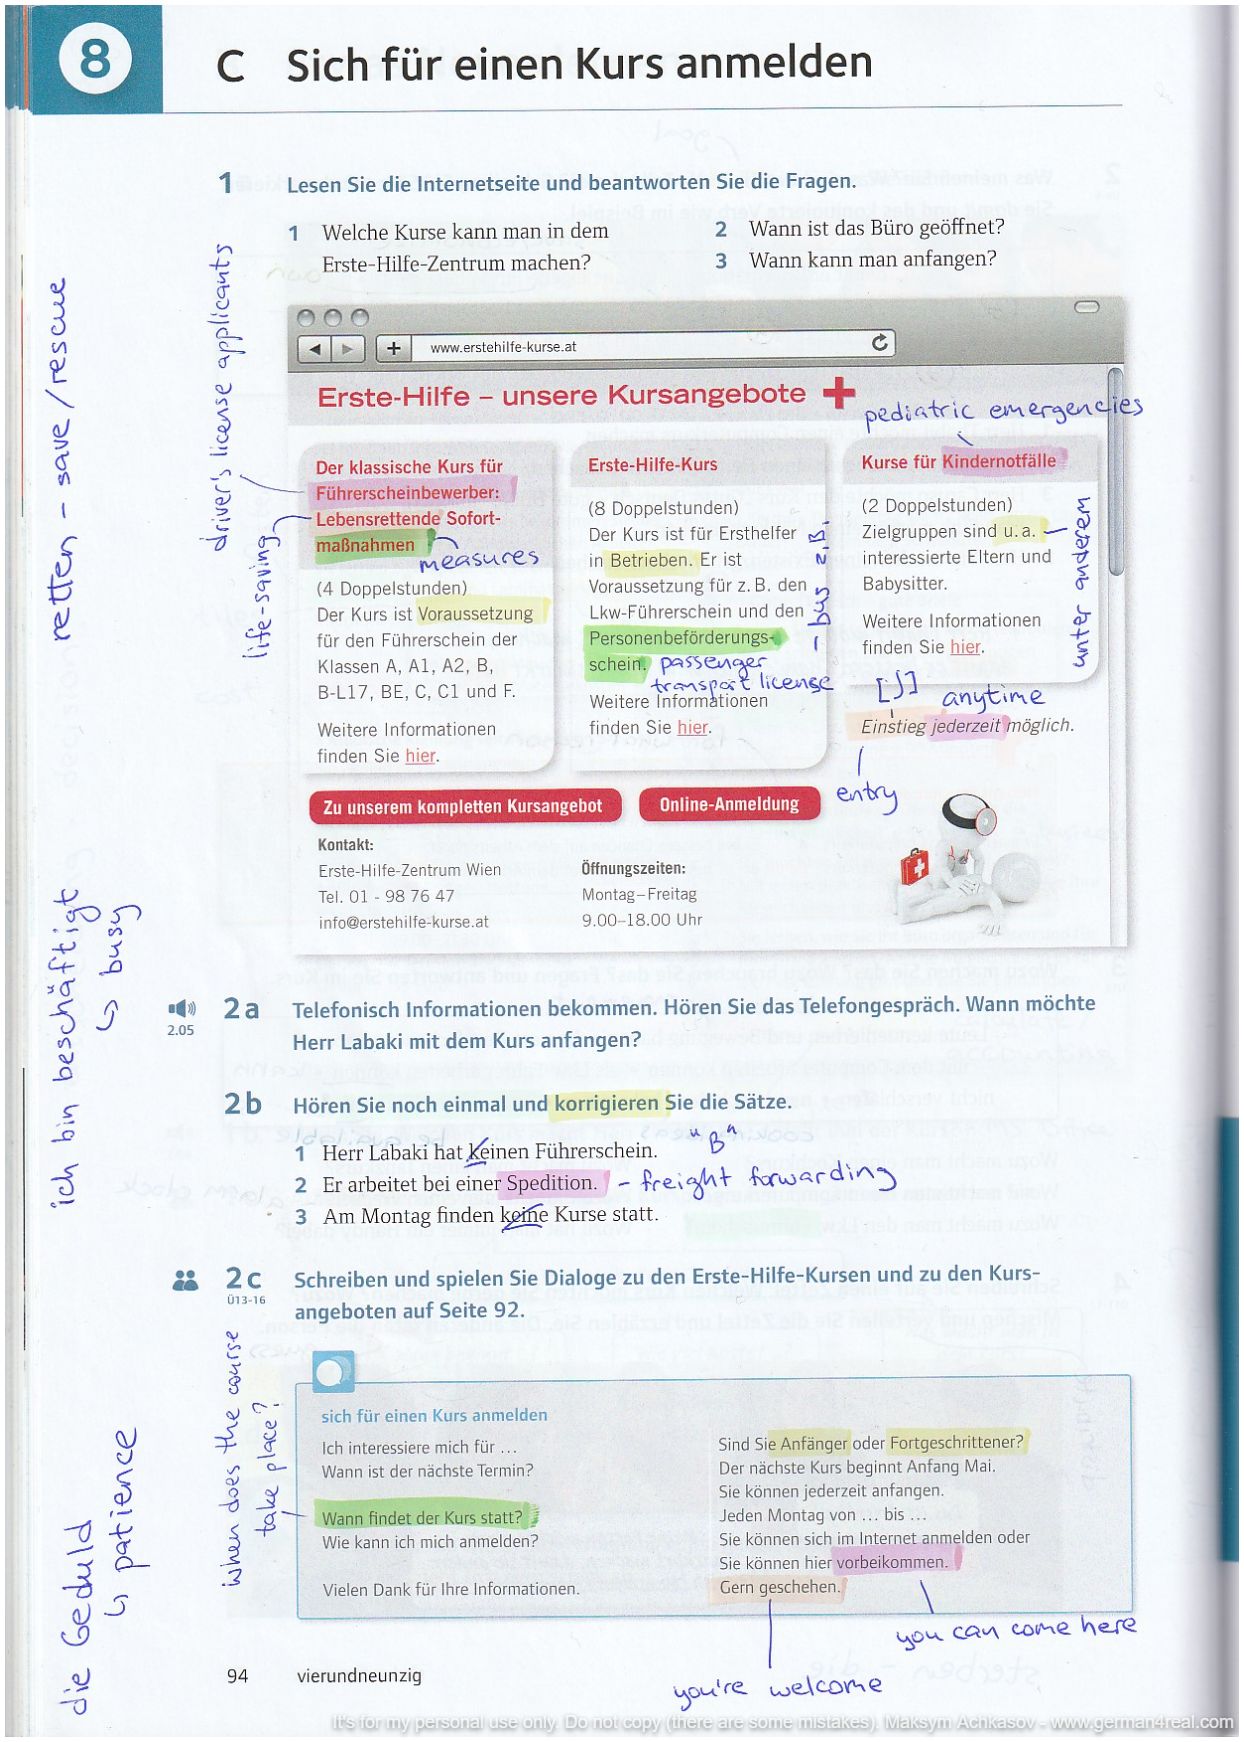 8
C Sich für einen Kurs anmelden
1 Lesen Sie die Internetseite und beantworten Sie die Fragen.
1 Welche Kurse kann man in dem
Erste-Hilfe-Zentrum machen?
2 Wann ist das Büro geöffnet?
3 Wann kann man anfangen?
retten - save/rescue
driver's license applicants
life-saving
www.erstehilfe-kurse.at
Erste-Hilfe – unsere Kursangebote
pediatric emergencies
Der klassische Kurs für
Führerscheinbewerber:
Lebensrettende Sofort-
maßnahmen
measures
(4 Doppelstunden)
Der Kurs ist Voraussetzung
für den Führerschein der
Klassen A, A1, A2, B,
B-L17, BE, C, C1 und F.
Weitere Informationen
finden Sie hier.
Erste-Hilfe-Kurs
(8 Doppelstunden)
Der Kurs ist für Ersthelfer
in Betrieben. Er ist
Voraussetzung für z.B. den
Lkw-Führerschein und den
Personenbeförderungs-
schein.
passenger
transport license
- bus z.B.
Weitere Informationen
finden Sie hier.
Kurse für Kindernotfälle
(2 Doppelstunden)
Zielgruppen sind u.a.
interessierte Eltern und
Babysitter.
unter anderem
Weitere Informationen
finden Sie hier.
[ʃ] anytime
Einstieg jederzeit möglich.
entry
Zu unserem kompletten Kursangebot
Online-Anmeldung
Kontakt:
Erste-Hilfe-Zentrum Wien
Tel. 01 - 98 76 47
info@erstehilfe-kurse.at
Öffnungszeiten:
Montag–Freitag
9.00–18.00 Uhr
ich bin beschäftigt
↳ busy
2.05
2a Telefonisch Informationen bekommen. Hören Sie das Telefongespräch. Wann möchte
Herr Labaki mit dem Kurs anfangen?
2b Hören Sie noch einmal und korrigieren Sie die Sätze.
1 Herr Labaki hat keinen Führerschein. "B"
2 Er arbeitet bei einer Spedition. - freight forwarding
3 Am Montag finden keine Kurse statt.
2c Schreiben und spielen Sie Dialoge zu den Erste-Hilfe-Kursen und zu den Kurs-
Ü13-16
angeboten auf Seite 92.
When does the course
take place?
die Geduld
↳ patience
sich für einen Kurs anmelden
Ich interessiere mich für ...
Wann ist der nächste Termin?
Wann findet der Kurs statt?
Wie kann ich mich anmelden?
Vielen Dank für Ihre Informationen.
Sind Sie Anfänger oder Fortgeschrittener?
Der nächste Kurs beginnt Anfang Mai.
Sie können jederzeit anfangen.
Jeden Montag von ... bis ...
Sie können sich im Internet anmelden oder
Sie können hier vorbeikommen.
Gern geschehen.
you can come here
you're welcome
94 vierundneunzig
It's for my personal use only. Do not copy (there are some mistakes). Maksym Achkasov - www.german4real.com